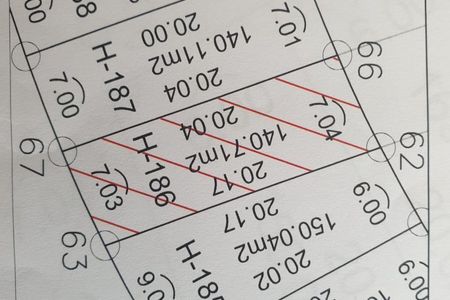 8
20.00
7.01
H-187
140.11m2
7.00
20.04
66
67
20.04
7.04
H-186
140.71m2
7.03
20.17
62
63
20.17
6.00
150.04m2
20.02
6.00